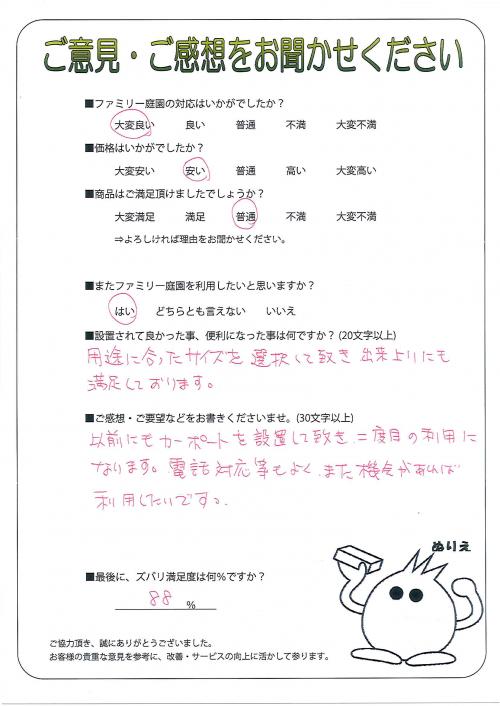 ご意見・ご感想をお聞かせください
■ファミリー庭園の対応はいかがでしたか？
大変良い 良い 普通 不満 大変不満
■価格はいかがでしたか？
大変安い 安い 普通 高い 大変高い
■商品はご満足頂けましたでしょうか？
大変満足 満足 普通 不満 大変不満
⇒よろしければ理由をお聞かせください。
■またファミリー庭園を利用したいと思いますか？
はい どちらとも言えない いいえ
■設置されて良かった事、便利になった事は何ですか？(20文字以上)
用途に合ったサイズを選択して致き出来上りにも
満足しております。
■ご感想・ご要望などをお書きくださいませ。(30文字以上)
以前にもカーポートを設置して致き、二度目の利用に
なります。電話対応等もよく、また機会があれば
利用したいです。
ぬりえ
■最後に、ズバリ満足度は何％ですか？
88 ％
ご協力頂き、誠にありがとうございました。
お客様の貴重な意見を参考に、改善・サービスの向上に活かして参ります。